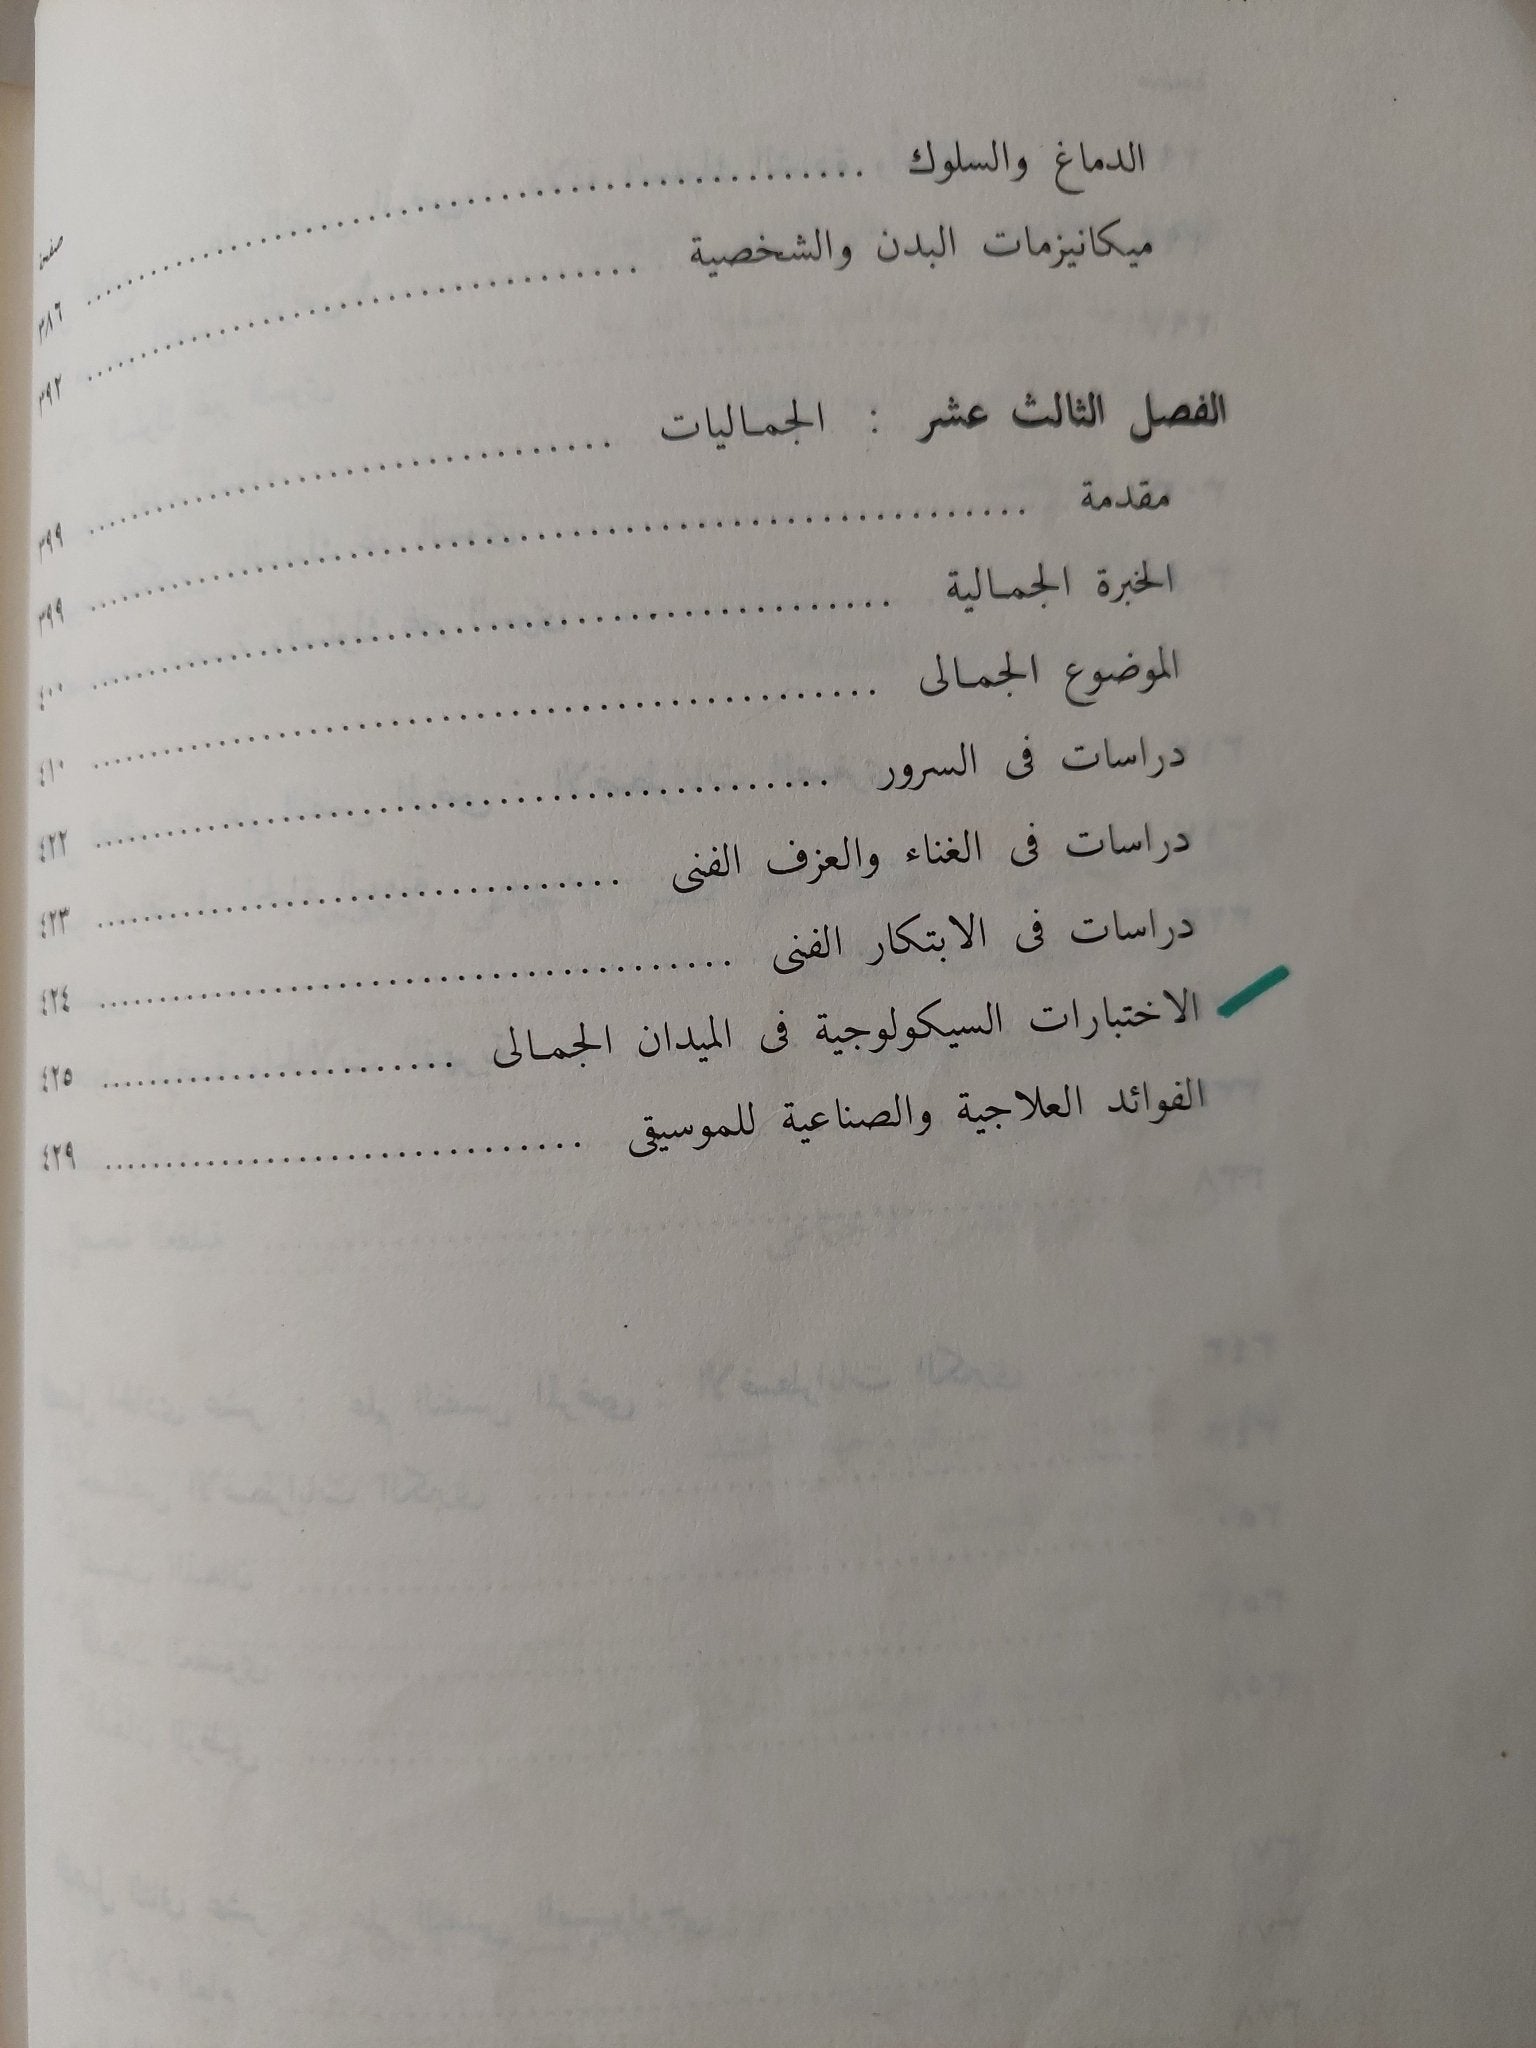 صفحة
الدماغ والسلوك ........................................ ٣٨٦
ميكانيزمات البدن والشخصية ........................................ ٣٩٢
الفصل الثالث عشر : الجماليات ........................................ ٣٩٩
مقدمة ........................................ ٣٩٩
الخبرة الجمالية ........................................ ٤٠٠
الموضوع الجمالى ........................................ ٤١٠
دراسات فى السرور ........................................ ٤٢٢
دراسات فى الغناء والعزف الفنى ........................................ ٤٢٣
دراسات فى الابتكار الفنى ........................................ ٤٢٤
الاختبارات السيكولوجية فى الميدان الجمالى ........................................ ٤٢٥
الفوائد العلاجية والصناعية للموسيقى ........................................ ٤٢٩